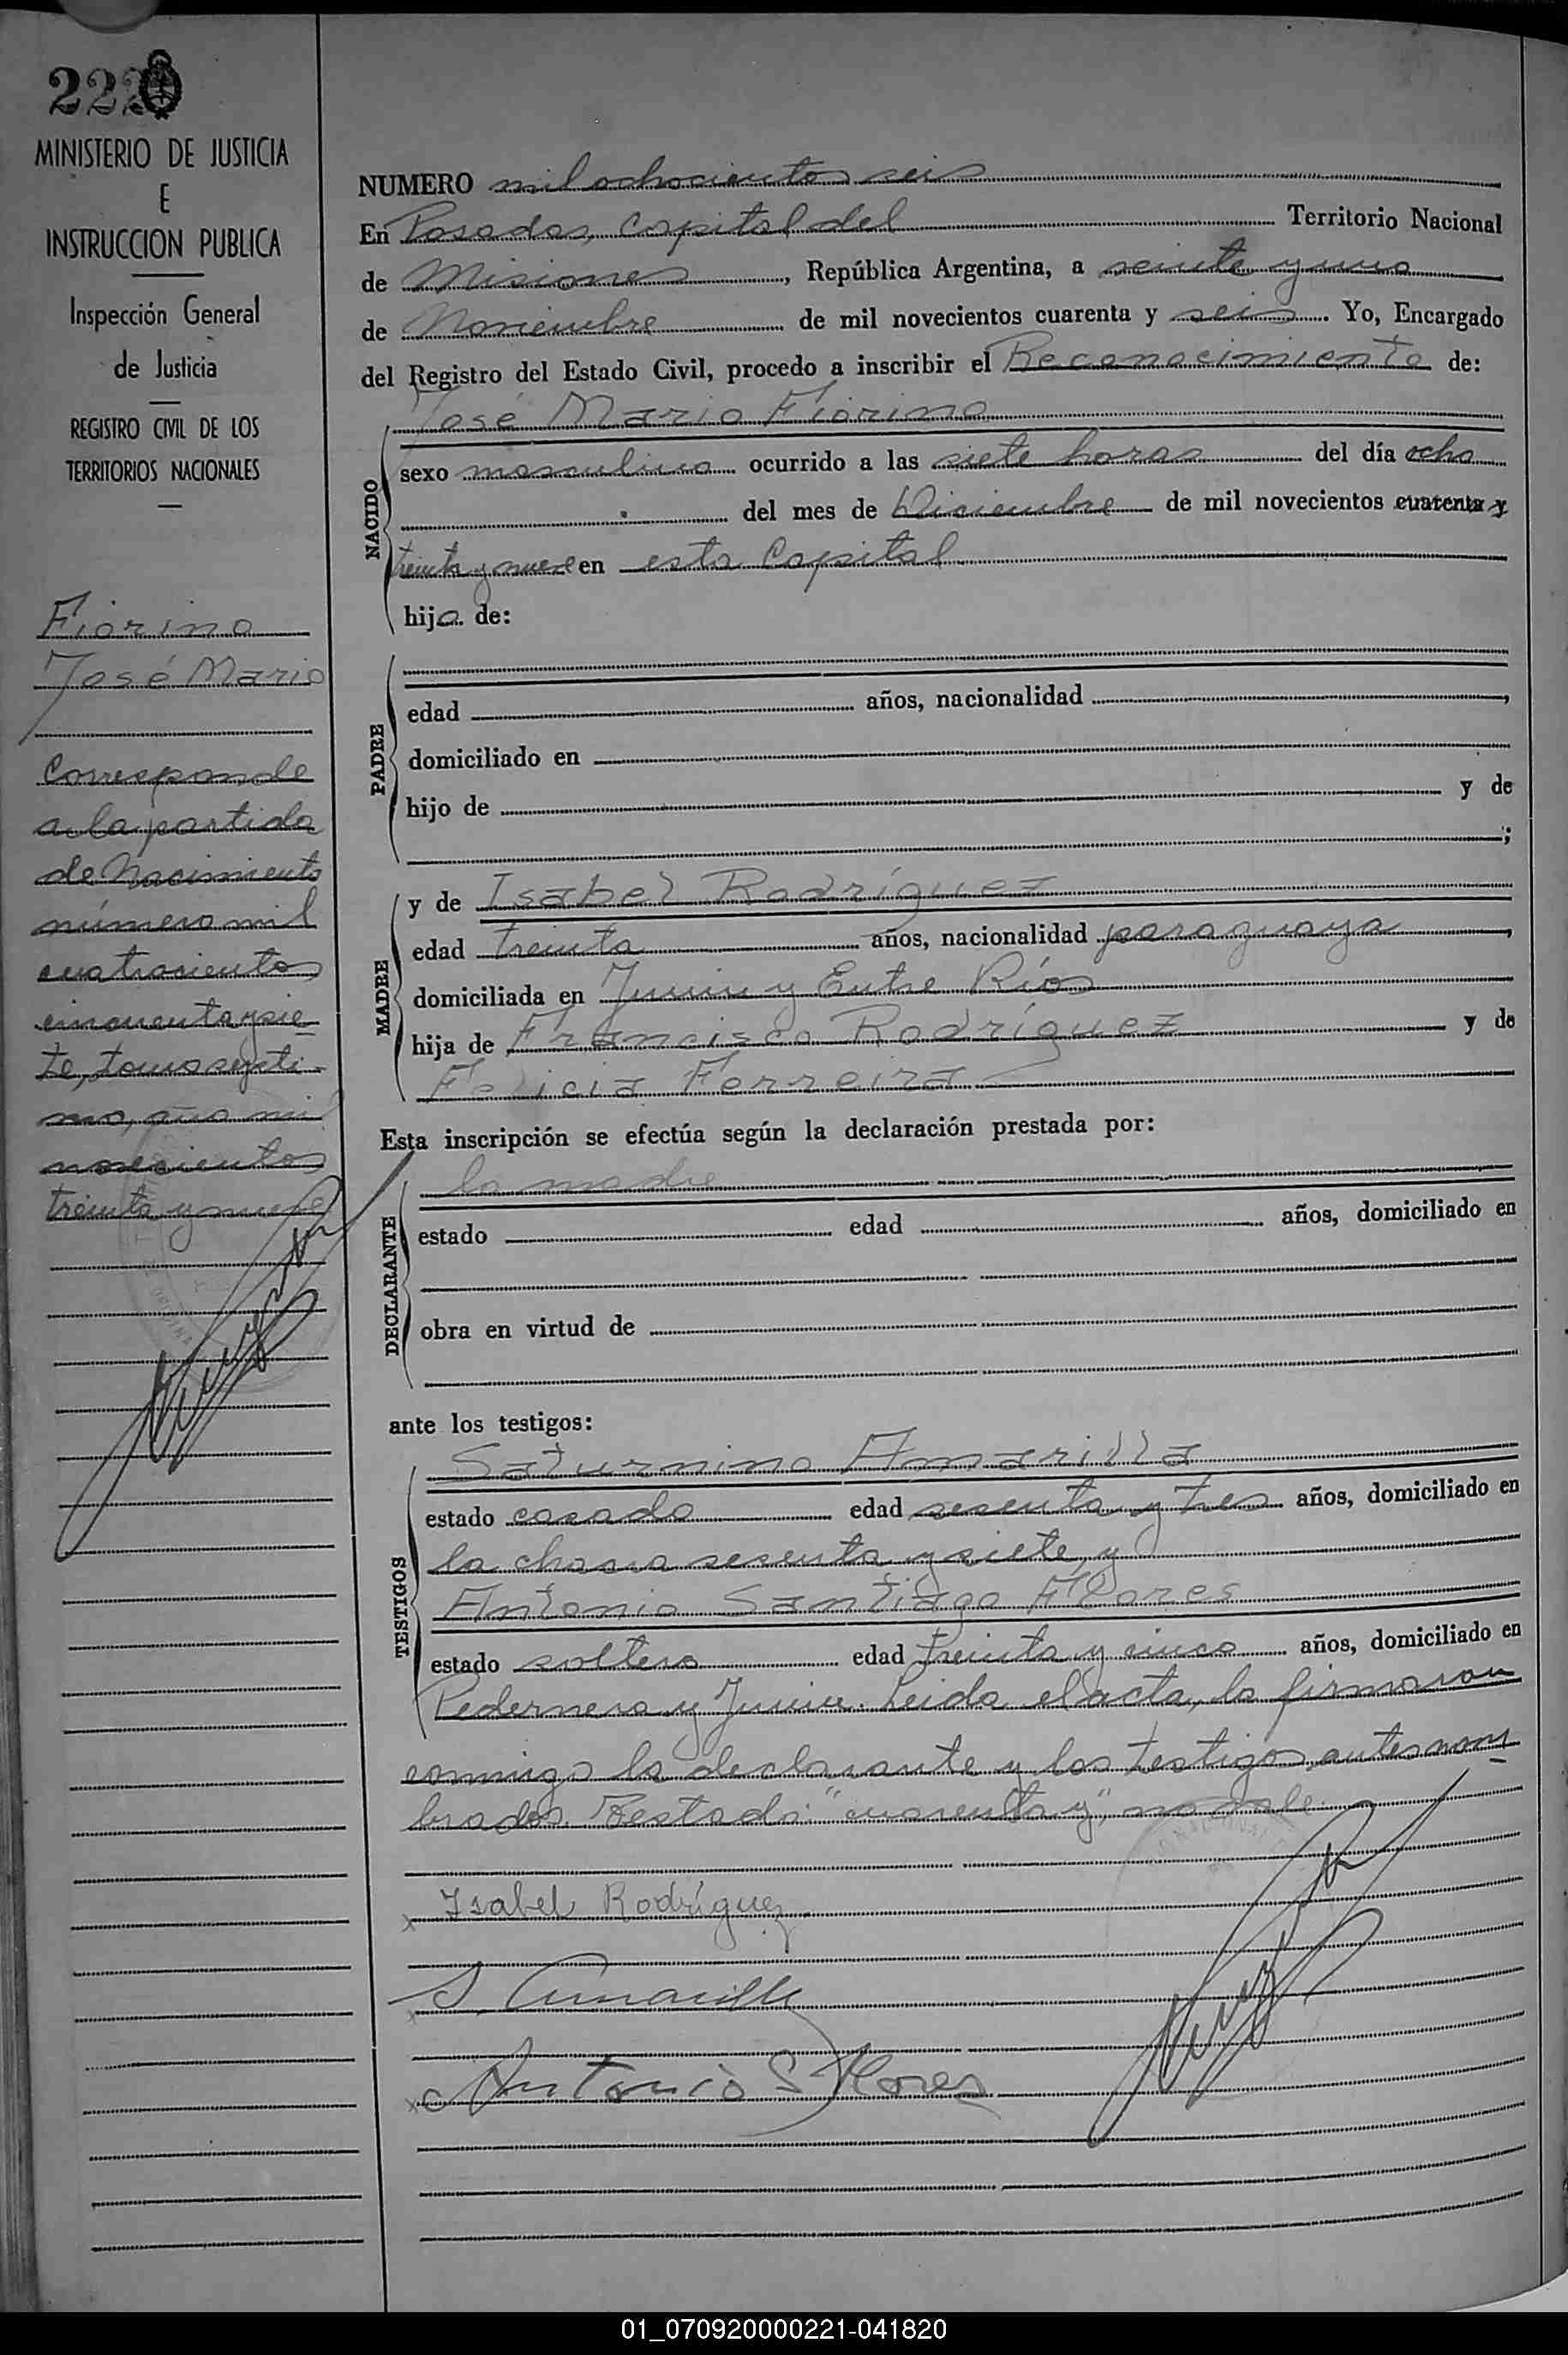 222
MINISTERIO DE JUSTICIA
E
INSTRUCCION PUBLICA
Inspección General
de Justicia
REGISTRO CIVIL DE LOS
TERRITORIOS NACIONALES
Fiorino
José Mario
Corresponde
a la partida
de Nacimiento
número mil
cuatrocientos
cincuenta y sie
te, tomo sépti-
mo, año mil
novecientos
treinta y nueve
NUMERO mil ochocientos seis
En Posadas, Capital del Territorio Nacional
de Misiones, República Argentina, a veinte y uno
de Noviembre de mil novecientos cuarenta y seis. Yo, Encargado
del Registro del Estado Civil, procedo a inscribir el Reconocimiento de:
José Mario Fiorino
NACIDO
sexo masculino ocurrido a las siete horas del día ocho
del mes de Diciembre de mil novecientos cuarenta y
treinta y nueve en esta Capital
hijo de:
PADRE
edad años, nacionalidad ,
domiciliado en
hijo de y de
;
MADRE
y de Isabel Rodríguez
edad treinta años, nacionalidad paraguaya,
domiciliada en Junin y Entre Ríos
hija de Francisco Rodríguez y de
Felicia Ferreira
Esta inscripción se efectúa según la declaración prestada por:
DECLARANTE
la madre
estado edad años, domiciliado en
obra en virtud de
ante los testigos:
TESTIGOS
Saturnino Amarilla
estado casado edad sesenta y tres años, domiciliado en
la chacra sesenta y siete, y
Antonio Santiago Flores
estado soltero edad treinta y cinco años, domiciliado en
Pedernera y Junin. Leida el acta, la firmaron
conmigo la declarante y los testigos antes nom
brados. Testado: "cuarenta y", no vale.
Isabel Rodríguez
S. Amarilla
Antonio S Flores
01_070920000221-041820